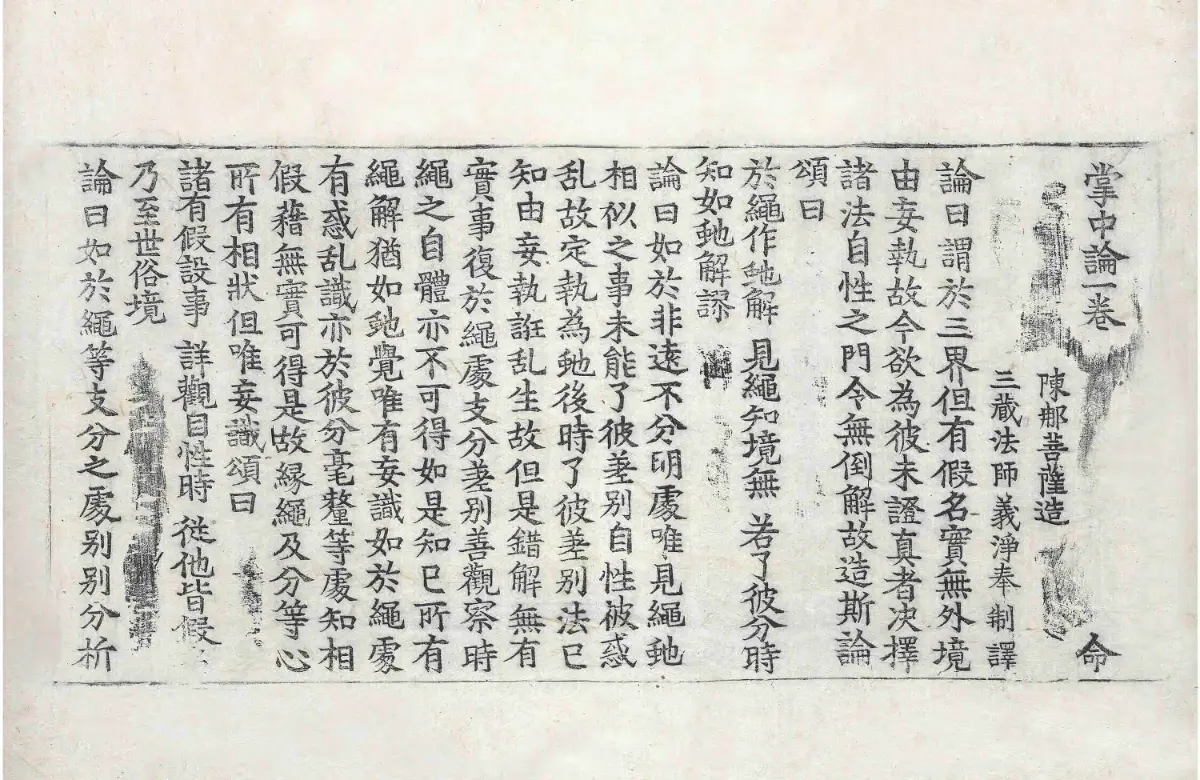 掌中論一卷 命
陳那菩薩造
三藏法師義淨奉制譯
論曰謂於三界但有假名實無外境
由妄執故今欲為彼未證真者决擇
諸法自性之門令無倒解故造斯論
頌曰
於繩作虵解 見繩知境無 若了彼分時
知如虵解謬
論曰如於非遠不分明處唯見繩虵
相似之事未能了彼差别自性被惑
乱故定執為虵後時了彼差别法已
知由妄執誑乱生故但是錯解無有
實事復於繩處支分差别善觀察時
繩之自體亦不可得如是知已所有
繩解猶如虵覺唯有妄識如於繩處
有惑乱識亦於彼分毫釐等處知相
假藉無實可得是故緣繩及分等心
所有相狀但唯妄識頌曰
諸有假設事 詳觀自性時 從他皆假名
乃至世俗境
論曰如於繩等支分之處别别分析